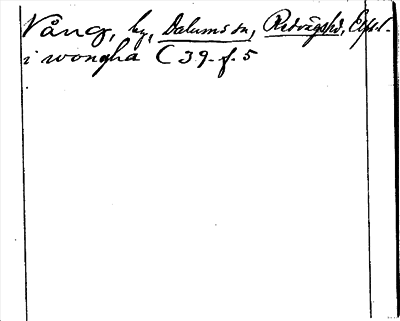 Vång, by, Dalums sn, Redvägs hd, Älfsb. l.
i wongha C 39. f. 5